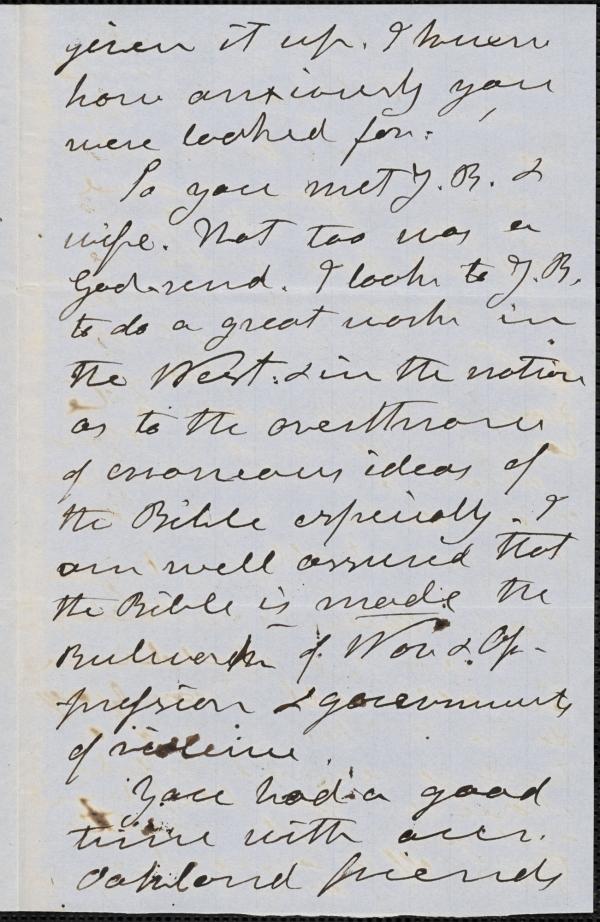 given it up. I knew
how anxiously you
were looked for.
So you met J. B. &
wife. That too was a
God-send. I look to J. B.
to do a great work in
the West. & in the nation
as to the overthrow
of erroneous ideas of
the Bible especially. I
am well assured that
the Bible is made the
Bulwark of War & Op-
pression & governments
of violence.
You had a good
time with our
Oakland friends